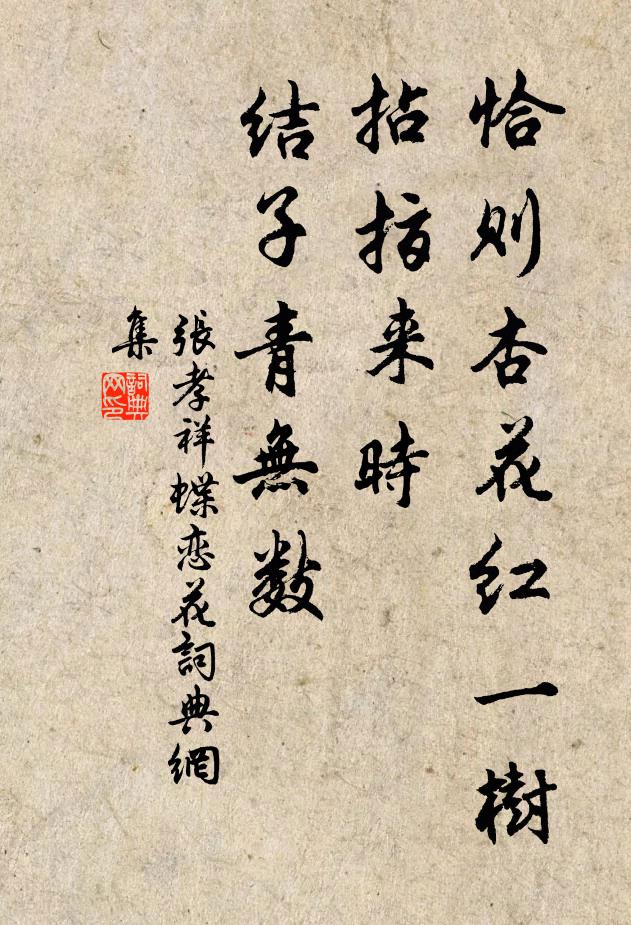 恰则杏花红一樹
拈指来時
结子青無数
張孝祥蝶恋花詞典網
集
詞典
网印